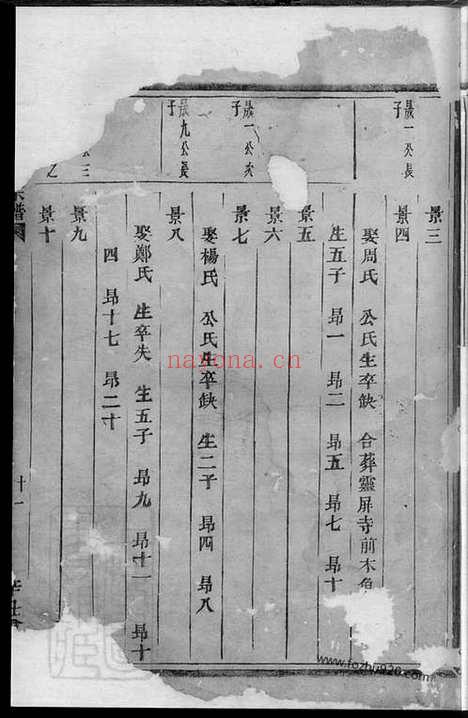 景三
晟一公長子
景四
娶周氏 公氏生卒缺 合葬靈屏寺前木魚
生五子 昂一 昂二 昂五 昂七 昂十
景五
景六
晟一公次子
景七
娶楊氏 公氏生卒缺 生二子 昂四 昂八
晟九公長子
景八
娶鄭氏 生卒失 生五子 昂九 昂十一 昂十
四 昂十七 昂二十
公三
景九
之
景十
譜
十一
nayona.cn
www.fozhu920.com